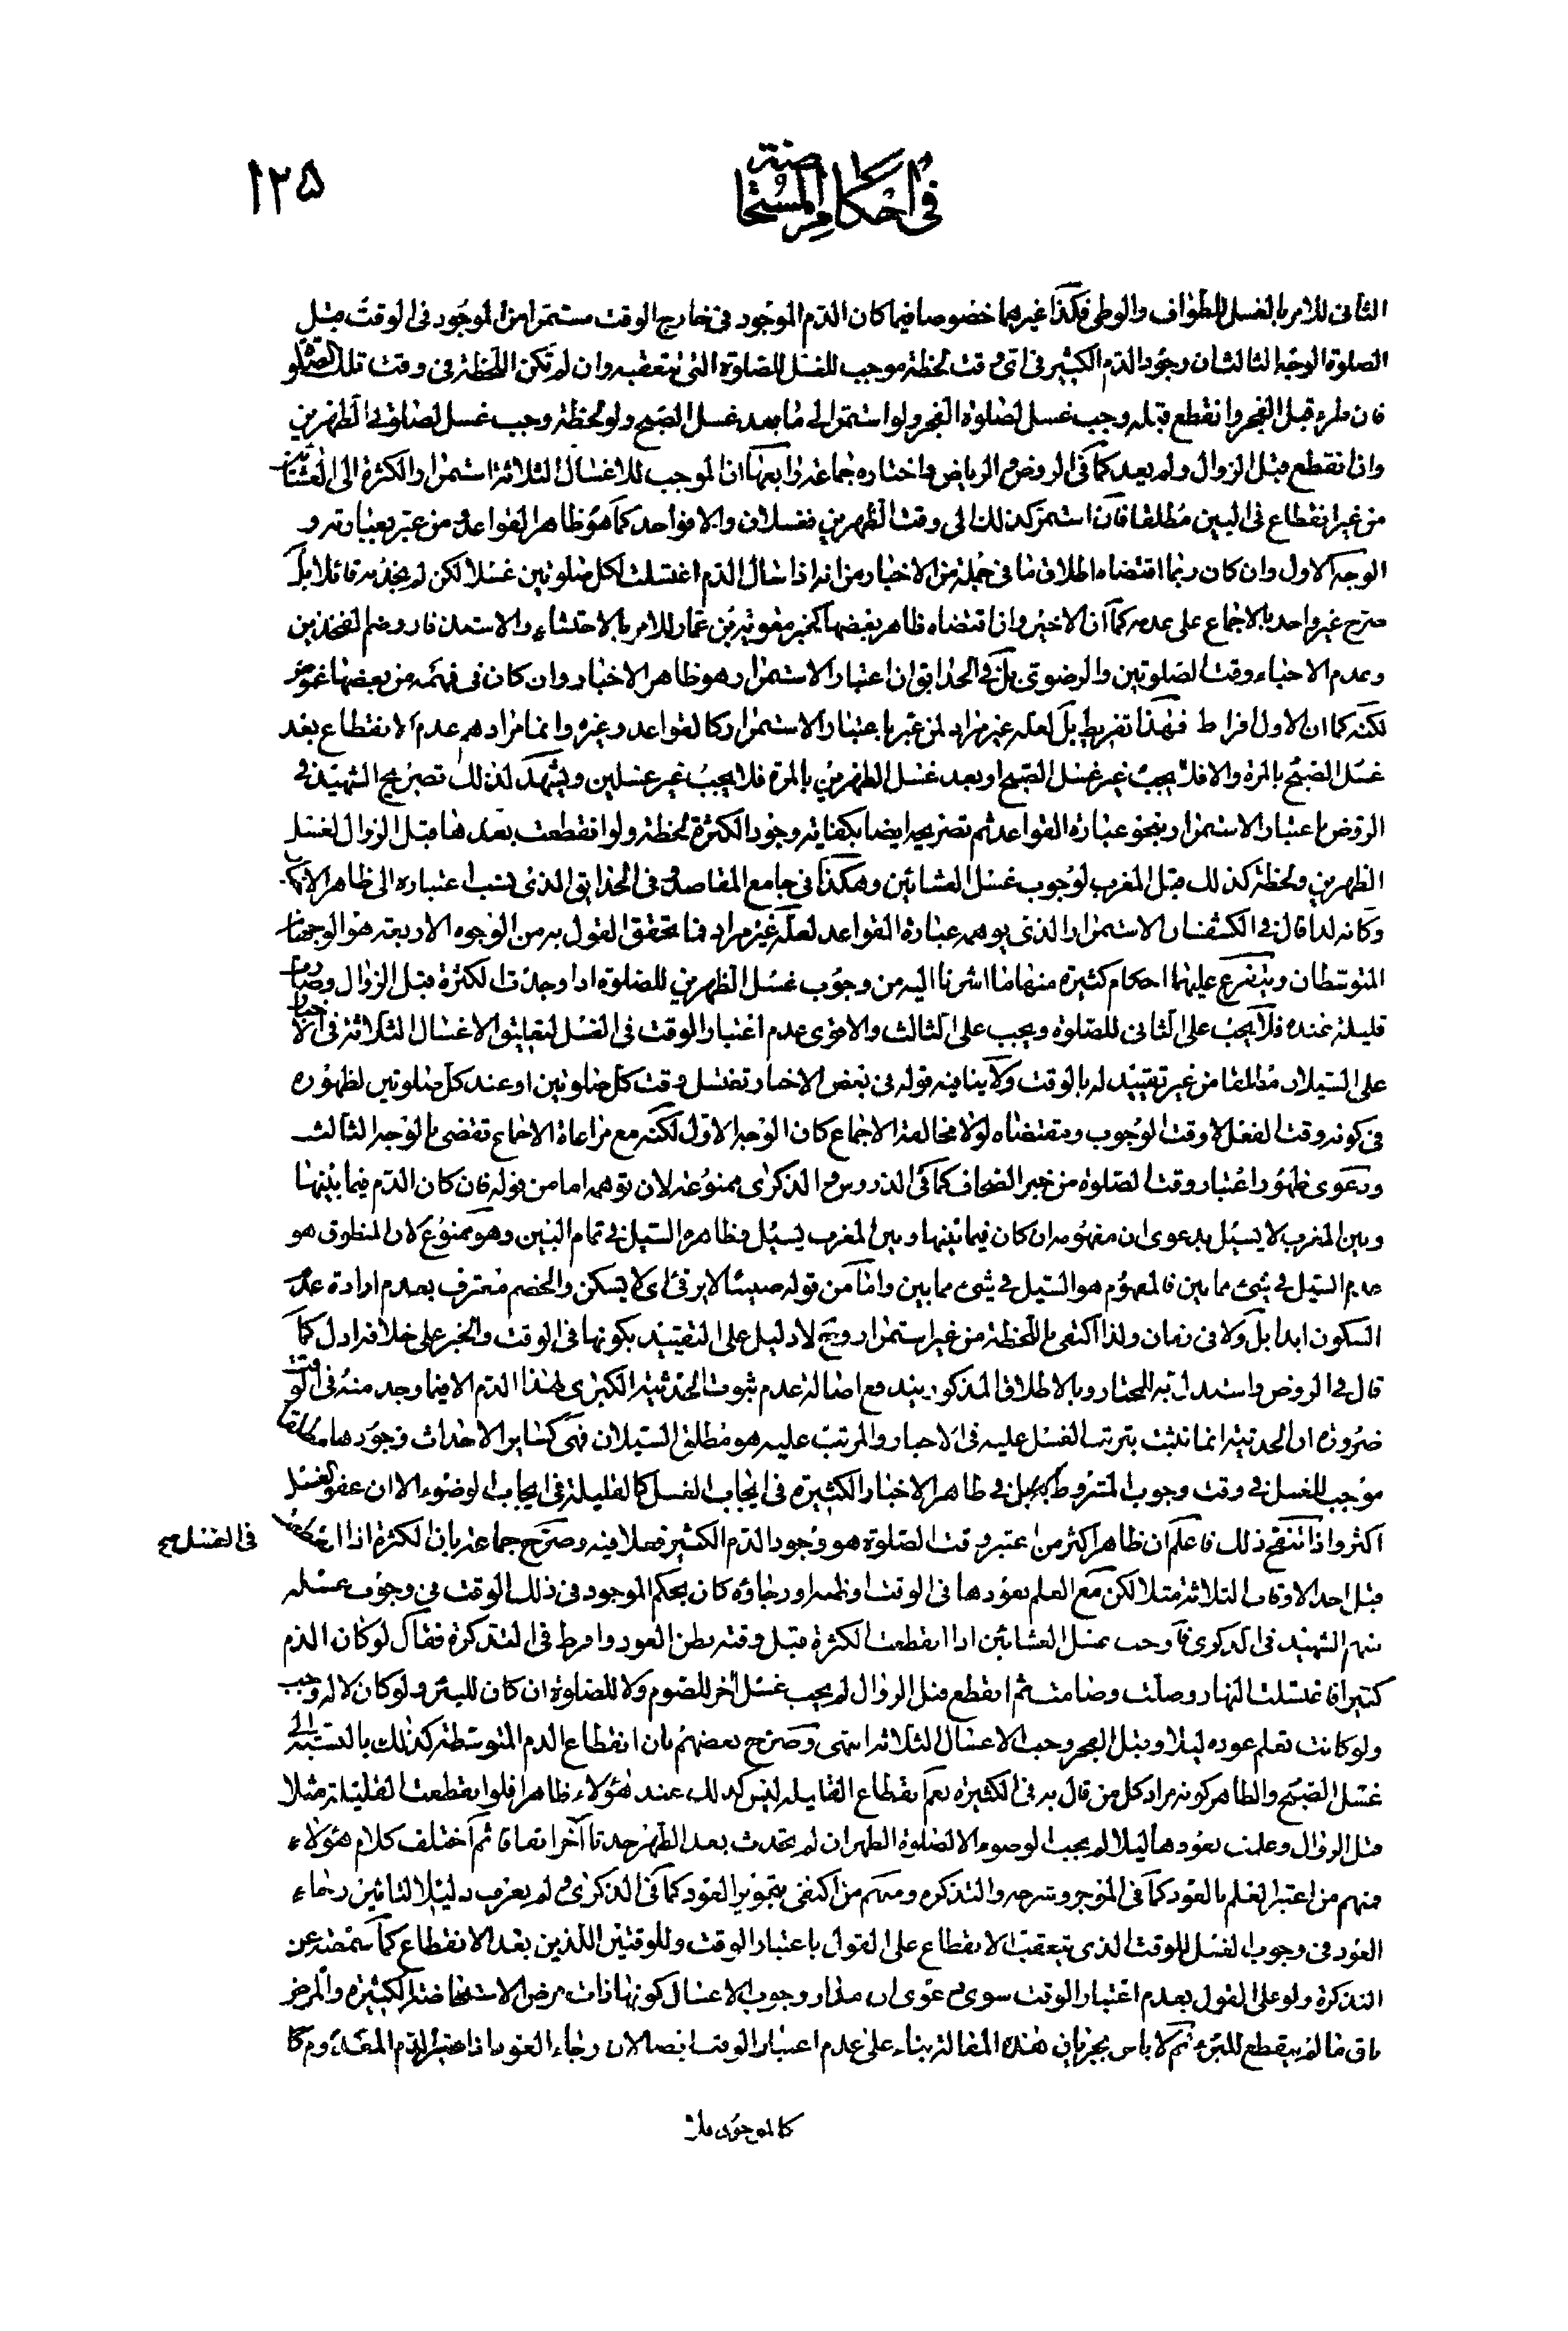 في أحكام المستحاضة
١٢٥
الثاني للامر بالغسل للطواف والوطي فكذا غيرهما خصوصا فيما كان الدم الموجود في خارج الوقت مستمرا من الموجود في الوقت قبل
الصلوة الوجه الثالث ان وجود الدم الكثير في اي وقت لحظة موجب للغسل للصلوة التي تتعقبه وان لم تكن اللحظة في وقت تلك الصلو
فان طرء قبل الفجر وانقطع قبله وجب غسل لصلوة الفجر ولو استمر الى ما بعد غسل الصبح ولو لحظة وجب غسل لصلوتي الظهرين
وان انقطع قبل الزوال ولم يعد كما في الروض والرياض واختاره جماعة رابعها ان الموجب للاغسال الثلاثة استمرار الكثرة الى العشائين
من غير انقطاع في البين مطلقا فان استمر كذلك الى وقت الظهرين فغسلان والا فواحد كما هو ظاهر القواعد ومن عبر بعبارته و
الوجه الاول وان كان ربما اقتضاه اطلاق ما في جملة من الاخبار من انه اذا سال الدم اغتسلت لكل صلوتين غسلا لكن لم يجد به قائلا بل
صرح غير واحد بالاجماع على عدمه كما ان الاخير وان اقتضاه ظاهر بعضها كخبر معوية بن عمار للامر بالاحتشاء والاستدفار وضم الفخذين
وعدم الاحتباء وقت الصلوتين والرضوي بل في الحدائق ان اعتبار الاستمرار هو ظاهر الاخبار وان كان في فهمه من بعضها غموض
لكنه كما ان الاول افراط فهذا تفريط بل لعله غير مراد لمن عبر باعتبار الاستمرار كالقواعد وغيره وانما مرادهم عدم الانقطاع بعد
غسل الصبح بالمرة والا فلا يجب غير غسل الصبح او بعد غسل الظهرين بالمرة فلا يجب غير غسلين ويشهد لذلك تصريح الشهيد في
الروض باعتبار الاستمرار بنحو عبارة القواعد ثم تصريحه ايضا بكفاية وجود الكثرة لحظة ولو انقطعت بعدها قبل الزوال لغسل
الظهرين ولحظة كذلك قبل المغرب لوجوب غسل العشائين وهكذا في جامع المقاصد وفي الحدائق الذي نسب اعتباره الى ظاهر الاخبار
وكانه لذا قال في الكشف ان الاستمرار الذي يوهمه عبارة القواعد لعله غير مراد فما تحقق القول به من الوجوه الاربعة هو الوجهان
المتوسطان ويتفرع عليهما احكام كثيرة منها ما اشرنا اليه من وجوب غسل الظهرين للصلوة اذا وجدت الكثرة قبل الزوال وصارت
قليلة عنده فلا يجب على الثاني للصلوة ويجب على الثالث والاقوى عدم اعتبار الوقت في الغسل لتعليق الاغسال الثلاثة في الاخبار
على السيلان مطلقا من غير تقييد له بالوقت ولا ينافيه قوله في بعض الاخبار تغتسل وقت كل صلوتين او عند كل صلوتين لظهوره
في كونه وقت الفعل لا وقت الوجوب ومقتضاه لولا مخالفة الاجماع كان الوجه الاول لكنه مع مراعاة الاجماع تقضي بالوجه الثالث
ودعوى ظهور اعتبار وقت الصلوة من خبر الصحاف كما في الدروس والذكرى ممنوعة لان توهمه اما من قوله فان كان الدم فيما بينها
وبين المغرب لا يسيل بدعوى ان مفهومه ان كان فيما بينها وبين المغرب يسيل وظاهره السيل في تمام البين وهو ممنوع لان المنطوق هو
عدم السيل في شيء مما بين فالمفهوم هو السيل في شيء مما بين واما من قوله صبيبا لا يرقئ اي لا يسكن والخصم معترف بعدم ارادة عدم
السكون ابدا بل ولا في زمان ولذا اكتفى باللحظة من غير استمرار وح لا دليل على التقييد بكونها في الوقت والخبر على خلافه ادل كما
قال في الروض واستدل به للمختار وبالاطلاق المذكور يندفع اصالة عدم ثبوت الحدثية الكبرى لهذا الدم الا فيما وجد منه في الوقت
ضرورة ان الحدثية انما تثبت بترتب الغسل عليه في الاخبار والمرتب عليه هو مطلق السيلان فهي كساير الاحداث وجودها مطلقا
موجب للغسل في وقت وجوب المشروط به بل في ظاهر الاخبار الكثيرة في ايجاب الغسل كالقليلة في ايجاب الوضوء الا ان عفو الغسل
اكثر واذا تنقح ذلك فاعلم ان ظاهر اكثر من اعتبر وقت الصلوة هو وجود الدم الكثير فعلا فيه وصرح جماعة بان الكثرة اذا انقطعت
في الغسل صح
قبل احد الاوقات الثلاثة مثلا لكن مع العلم بعودها في الوقت او ظنه او رجاؤه كان بحكم الموجود في ذلك الوقت في وجوب غسله
منهم الشهيد في الذكرى فاوجب غسل العشائين اذا انقطعت الكثرة قبل وقته بظن العود وافرط في التذكرة فقال لو كان الدم
كثيرا فاغتسلت النهار وصلت وصامت ثم انقطع قبل الزوال لم يجب غسل آخر للصوم ولا للصلوة ان كان للبرء ولو كان لا له وجب
ولو كانت تعلم عوده ليلا او قبل الفجر وجبت الاغسال الثلاثة انتهى وصرح بعضهم بان انقطاع الدم المتوسطة كذلك بالنسبة الى
غسل الصبح والظاهر كونه مراد كل من قال به في الكثيرة نعم انقطاع القليلة ليس كذلك عند هؤلاء ظاهرا فلو انقطعت القليلة مثلا
قبل الزوال وعلمت بعودها ليلا لم يجب الوضوء الا لصلوة الظهر ان لم يحدث بعد الطهر حدثا آخر اتفاقا ثم اختلف كلام هؤلاء
منهم من اعتبر العلم بالعود كما في الموجز وشرحه والتذكرة ومنهم من اكتفى بتجويز العود كما في الذكرى ولم يعرف دليل القائلين رجاء
العود في وجوب الغسل للوقت الذي يتعقب الانقطاع على القول باعتبار الوقت وللوقتين اللذين بعد الانقطاع كما سمعته عن
التذكرة ولو على القول بعدم اعتبار الوقت سوى دعوى ان مدار وجوب الاغسال كونها ذات مرض الاستحاضة الكثيرة والمرض
باق ما لم ينقطع للبرء نعم لا باس بجريان هذه المقالة بناء على عدم اعتبار الوقت ايضا لان رجاء العود اذا اعتبر الدم المعدوم كا
كالموجود فلا